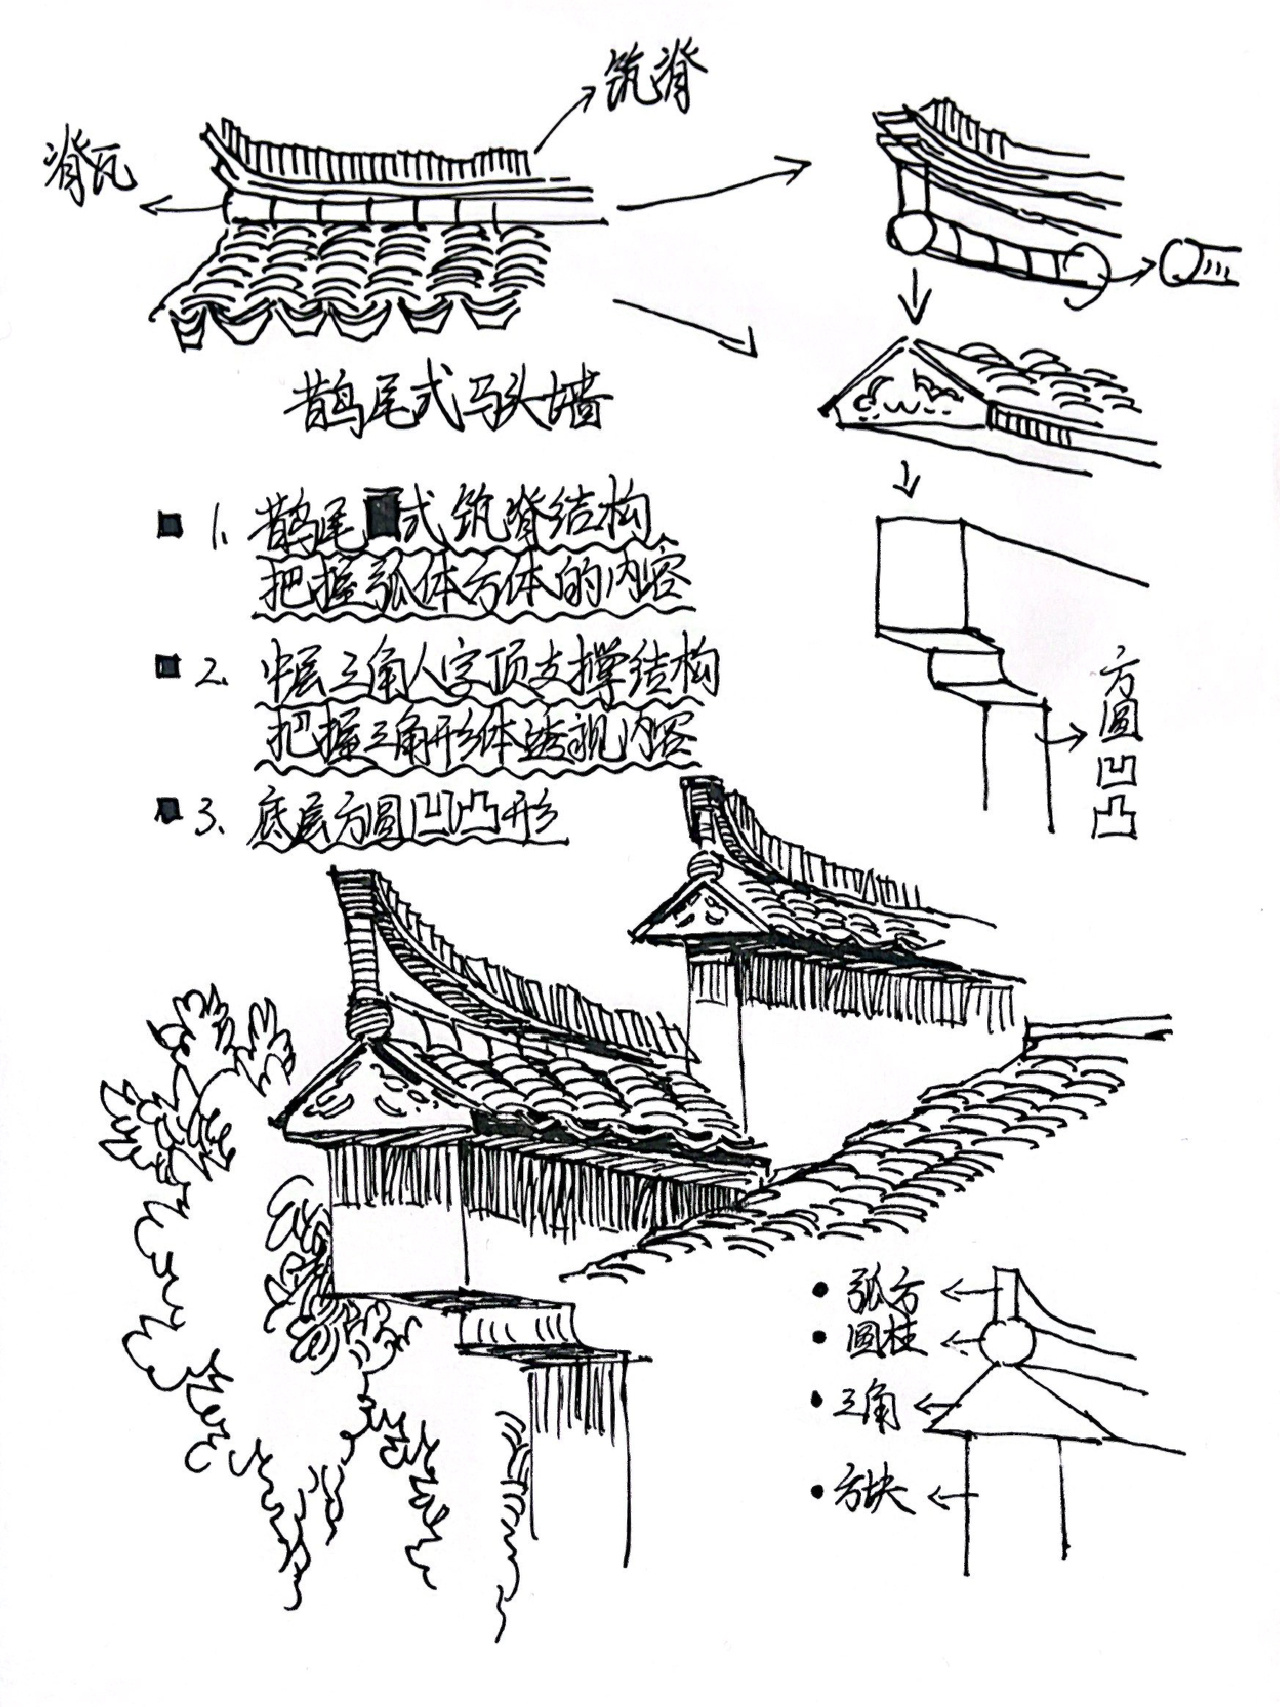 筑脊
脊瓦
鹊尾式马头墙
■ 1. 鹊尾式筑脊结构
把握弧体方体的内容
■ 2. 中层三角人字顶支撑结构
把握三角形体透视内容
■ 3. 底层方圆凹凸形
方圆凹凸
• 弧方
• 圆柱
• 三角
• 方块